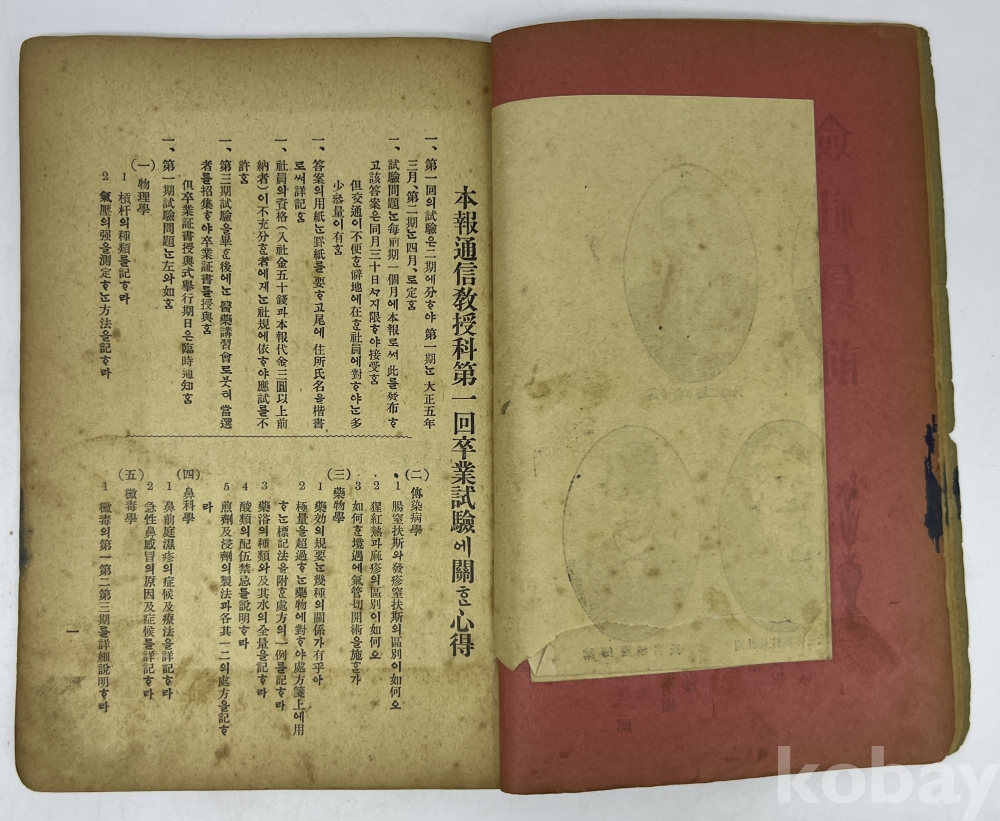 本報通信敎授科第一回卒業試驗에關ᄒᆞᆫ心得
一、第一回의試驗은二期에分ᄒᆞ야第一期ᄂᆞᆫ大正五年
三月、第二期ᄂᆞᆫ四月、로定홈
一、試驗問題ᄂᆞᆫ每前期一個月에本報로써此를發布ᄒᆞ
고該答案은同月三十日ᄭᆞ지限ᄒᆞ야接受홈
但交通이不便ᄒᆞᆫ僻地에在ᄒᆞᆫ社員에對ᄒᆞ야ᄂᆞᆫ多
少參量이有홈
一、答案의用紙ᄂᆞᆫ罫紙를要ᄒᆞ고尾에住所氏名을楷書
로써詳記홈
一、社員의資格(入社金五十錢과本報代金三圓以上前
納者)이不充分ᄒᆞᆫ者에게ᄂᆞᆫ社規에依ᄒᆞ야應試를不
許홈
一、第三期試驗을畢ᄒᆞᆫ後에ᄂᆞᆫ醫藥講習會로붓허當選
者를招集ᄒᆞ야卒業証書를授與홈
但卒業証書授與式擧行期日은臨時通知홈
一、第一期試驗問題ᄂᆞᆫ左와如홈
(一)物理學
1 槓杆의種類를記ᄒᆞ라
2 氣壓의强을測定ᄒᆞᄂᆞᆫ方法을記ᄒᆞ라
(二)傳染病學
1 腸窒扶斯와發疹窒扶斯의區別이如何오
2 猩紅熱과麻疹의區別이如何오
3 如何ᄒᆞᆫ境遇에氣管切開術을施ᄒᆞᆫ가
(三)藥物學
1 藥効의規要ᄂᆞᆫ幾種의關係가有乎아
2 極量을超過ᄒᆞᄂᆞᆫ藥物에對ᄒᆞ야處方箋上에用
ᄒᆞᄂᆞᆫ標記法을附ᄒᆞᆫ處方의一例를記ᄒᆞ라
3 藥浴의種類와及其水의全量을記ᄒᆞ라
4 酸類의配伍禁忌를說明ᄒᆞ라
5 煎劑及浸劑의製法과各其一二의處方을記ᄒᆞ
라
(四)鼻科學
1 鼻前庭濕疹의症候及療法을詳記ᄒᆞ라
2 急性鼻感冒의原因及症候를詳記ᄒᆞ라
(五)黴毒學
1 黴毒의第一第二第三期를詳細說明ᄒᆞ라
一
kobay